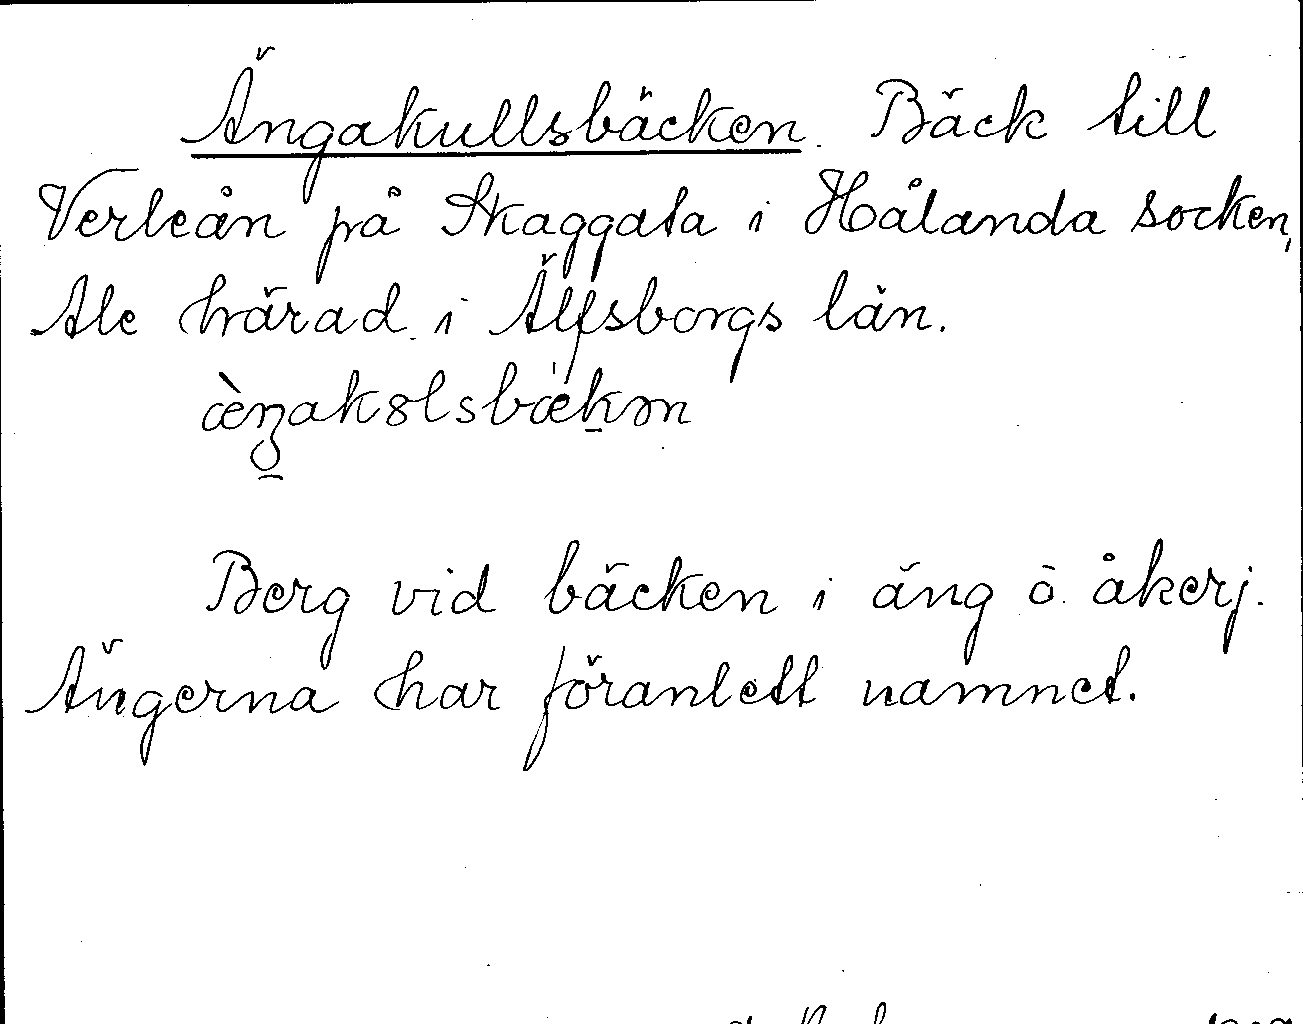 Ängakullsbäcken. Bäck till
Verleån på Skaggata i Hålanda socken,
Ale härad i Älfsborgs län.
Berg vid bäcken i äng o. åkerj.
Ängerna har föranlett namnet.